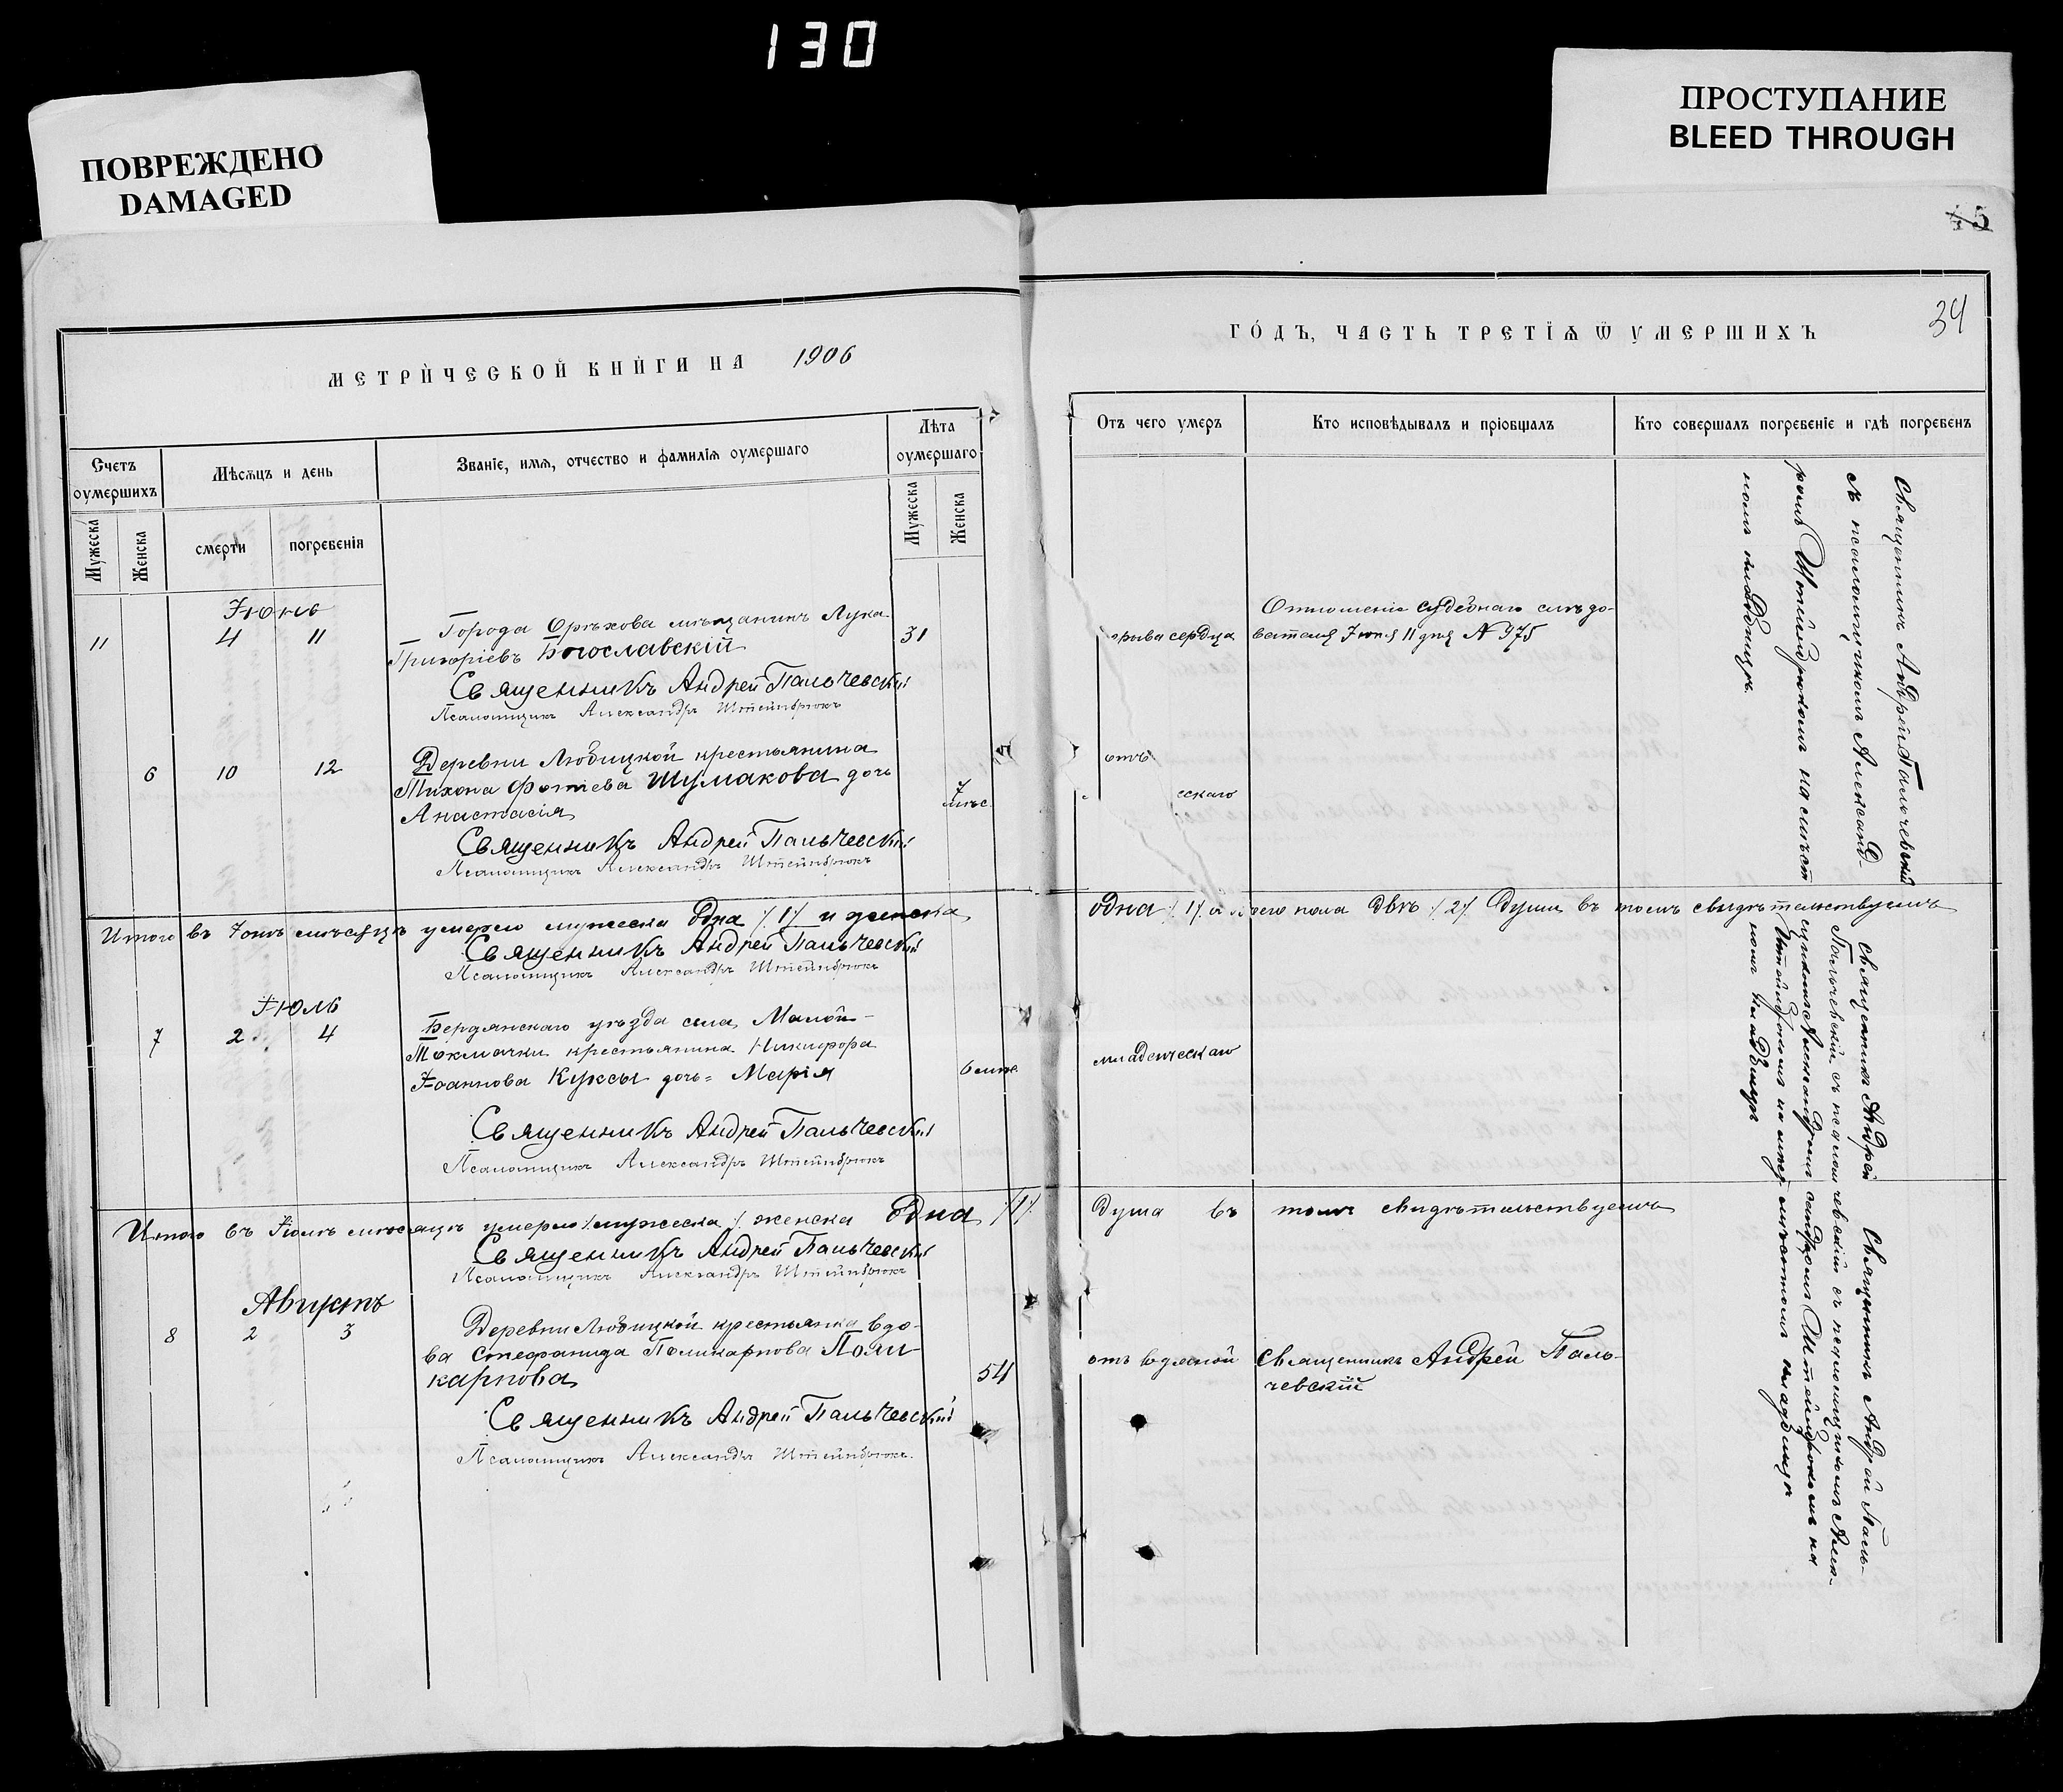 130
ПОВРЕЖДЕНО
DAMAGED
ПРОСТУПАНИЕ
BLEED THROUGH
45
34
МЕТРИЧЕСКОЙ КНИГИ НА 1906
ГОДЪ, ЧАСТЬ ТРЕТІѦ Ѿ УМЕРШИХЪ
Счетъ оумершихъ
Мѣсѧцъ и день
Званіе, имѧ, отчество и фамиліѧ оумершаго
Лѣта оумершаго
Мужеска
Женска
смерти
погребенія
Мужеска
Женска
Отъ чего умеръ
Кто исповѣдывалъ и пріобщалъ
Кто совершалъ погребеніе и гдѣ погребенъ
Іюнь
11 4 11
Города Орѣхова мѣщанинъ Лука
Григоріевъ Богославскій
31
Священникъ Андрей Пальчевскій
Псаломщикъ Александръ Штейнбрюкъ
рыва сердца
Отношеніе судебнаго слѣдо-
вателя Іюня 11 дня № 975
Священникъ Андрей Пальчевскій
съ псаломщикомъ Александ-
ромъ Штейнбрюкомъ на мѣст
номъ кладбищѣ
6 10 12
Деревни Любицкой крестьянина
Тихона Фотіева Шумакова дочь
Анастасія
7 мѣс.
Священникъ Андрей Пальчевскій
Псаломщикъ Александръ Штейнбрюкъ
отъ
ескаго
Итого въ Іюнѣ мѣсяцѣ умерло мужеска одна /1/ и женска
одна /1/ а обоего пола двѣ /2/ души въ томъ свидѣтельствуемъ
Священникъ Андрей Пальчевскій
Псаломщикъ Александръ Штейнбрюкъ
Іюль
7 2 4
Бердянскаго уѣзда села Малой-
Токмачки крестьянина Никифора
Іоаннова Куксы дочь= Марія
6 мѣс.
младенческаго
Священникъ Андрей
Пальчевскій съ псалом
щикомъ Александромъ
Штейнбрюкомъ на мѣст
номъ кладбищѣ
Священникъ Андрей Пальчевскій
Псаломщикъ Александръ Штейнбрюкъ
Итого въ Іюлѣ мѣсяцѣ умерло /мужеска / женска одна /1/
душа въ томъ свидѣтельствуемъ
Священникъ Андрей Пальчевскій
Псаломщикъ Александръ Штейнбрюкъ
Августъ
8 2 3
Деревни Любицкой крестьянка вдо-
ва Стефанида Поликарпова Поли
карпова
54
отъ водяной
Священникъ Андрей Паль-
чевскій
Священникъ Андрей Паль-
чевскій съ псаломщикомъ Алек-
сандромъ Штейнбрюкомъ на
мѣстномъ кладбищѣ
Священникъ Андрей Пальчевскій
Псаломщикъ Александръ Штейнбрюкъ.